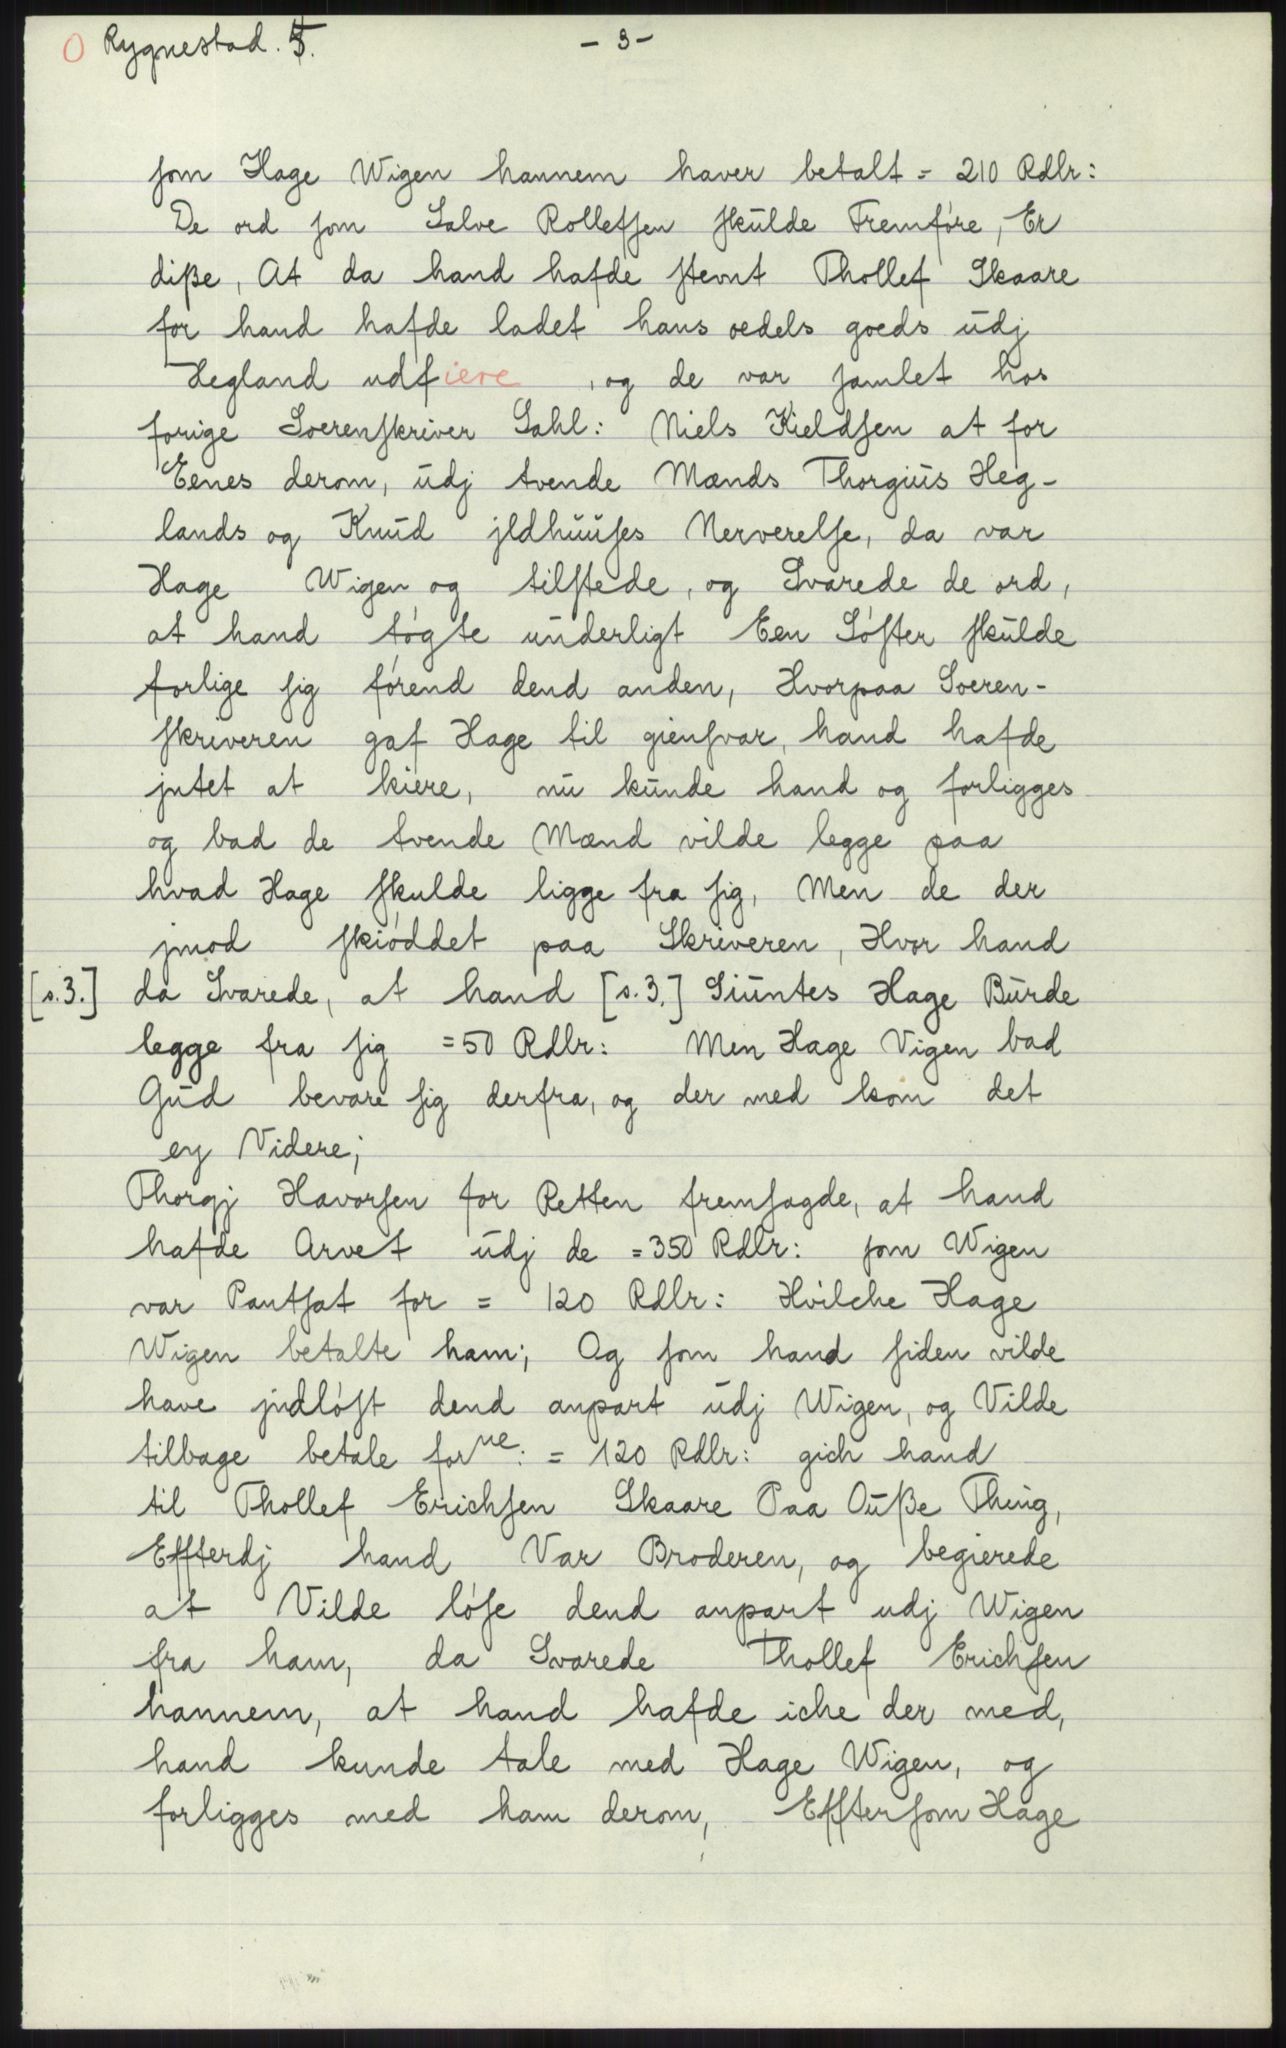 O Rygnestad. 5. - 3 -
som Hage Wigen hannem haver betalt = 210 Rdlr:
De ord som Salve Rollefsen skulde Fremføre, Er
diße, At da hand hafde stevnt Thollef Skaare
for hand hafde ladet hans oedels goeds udj
Hegland udfiere, og de var samlet hos
forige Soerenskriver Sahl: Niels Kieldsen at for
Eenes derom, udj tvende Mænds Thorgius Heg-
lands og Knud jldhuuses Nerverelse, da var
Hage Wigen og tilstede, og Svarede de ord,
at hand tøgte underligt Een Søster skulde
forlige sig førend dend anden, Hvorpaa Soeren-
skriveren gaf Hage til giensvar, hand hafde
jntet at kiere, nu kunde hand og forligges
og bad de tvende Mænd vilde legge paa
hvad Hage skulde ligge fra sig, Men de der
jmod skiøddet paa Skriveren, Hvor hand
[s.3.] da Svarede, at hand [s.3.] Siuntes Hage Burde
legge fra sig =50 Rdlr: Men Hage Vigen bad
Gud bevare sig derfra, og der med kom det
ey Videre;
Thorgj Havorsen for Retten fremsagde, at hand
hafde Arvet udj de =350 Rdlr: som Wigen
var Pantsat for = 120 Rdlr: Hvilche Hage
Wigen betalte ham; Og som hand siden vilde
have jndløst dend anpart udj Wigen, og Vilde
tilbage betale forne: = 120 Rdlr: gich hand
til Thollef Erichsen Skaare Paa Ouße Thing,
Effterdj hand Var Broderen, og begierede
at Vilde løse dend anpart udj Wigen
fra ham, da Svarede Thollef Erichsen
hannem, at hand hafde iche der med,
hand kunde tale med Hage Wigen, og
forligges med ham derom, Efftersom Hage